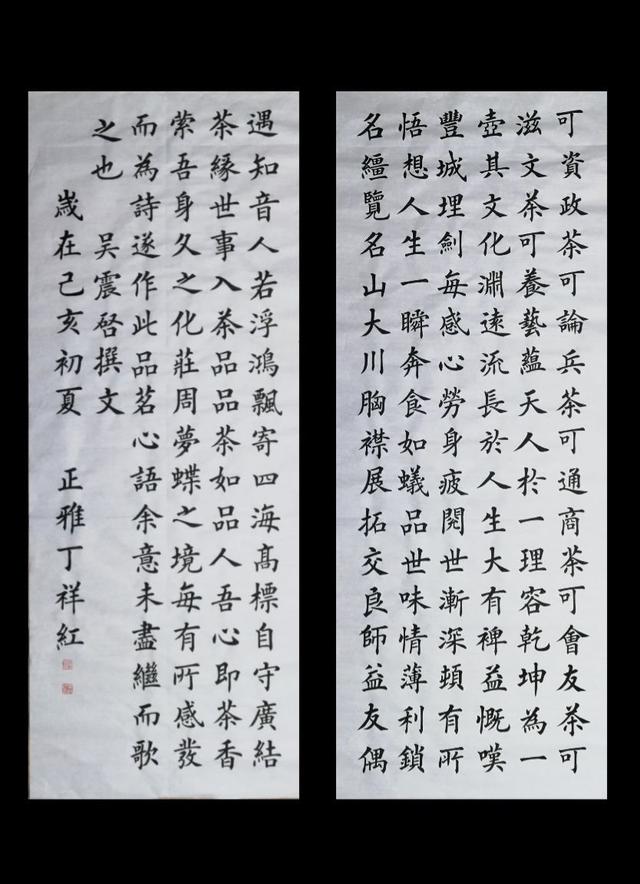 可資政茶可論兵茶可通商茶可會友茶可
滋文茶可養藝蘊天人於一理容乾坤為一
壺其文化淵遠流長於人生大有裨益慨嘆
豐城埋劍每感心勞身疲閱世漸深頓有所
悟想人生一瞬奔食如蟻品世味情薄利鎖
名繮覽名山大川胸襟展拓交良師益友偶
遇知音人若浮鴻飄寄四海髙標自守廣結
茶緣世事入茶品品茶如品人吾心即茶香
縈吾身久之化莊周夢蝶之境每有所感發
而為詩遂作此品茗心語余意未盡繼而歌
之也 吴震啓撰文
歲在己亥初夏 正雅丁祥紅